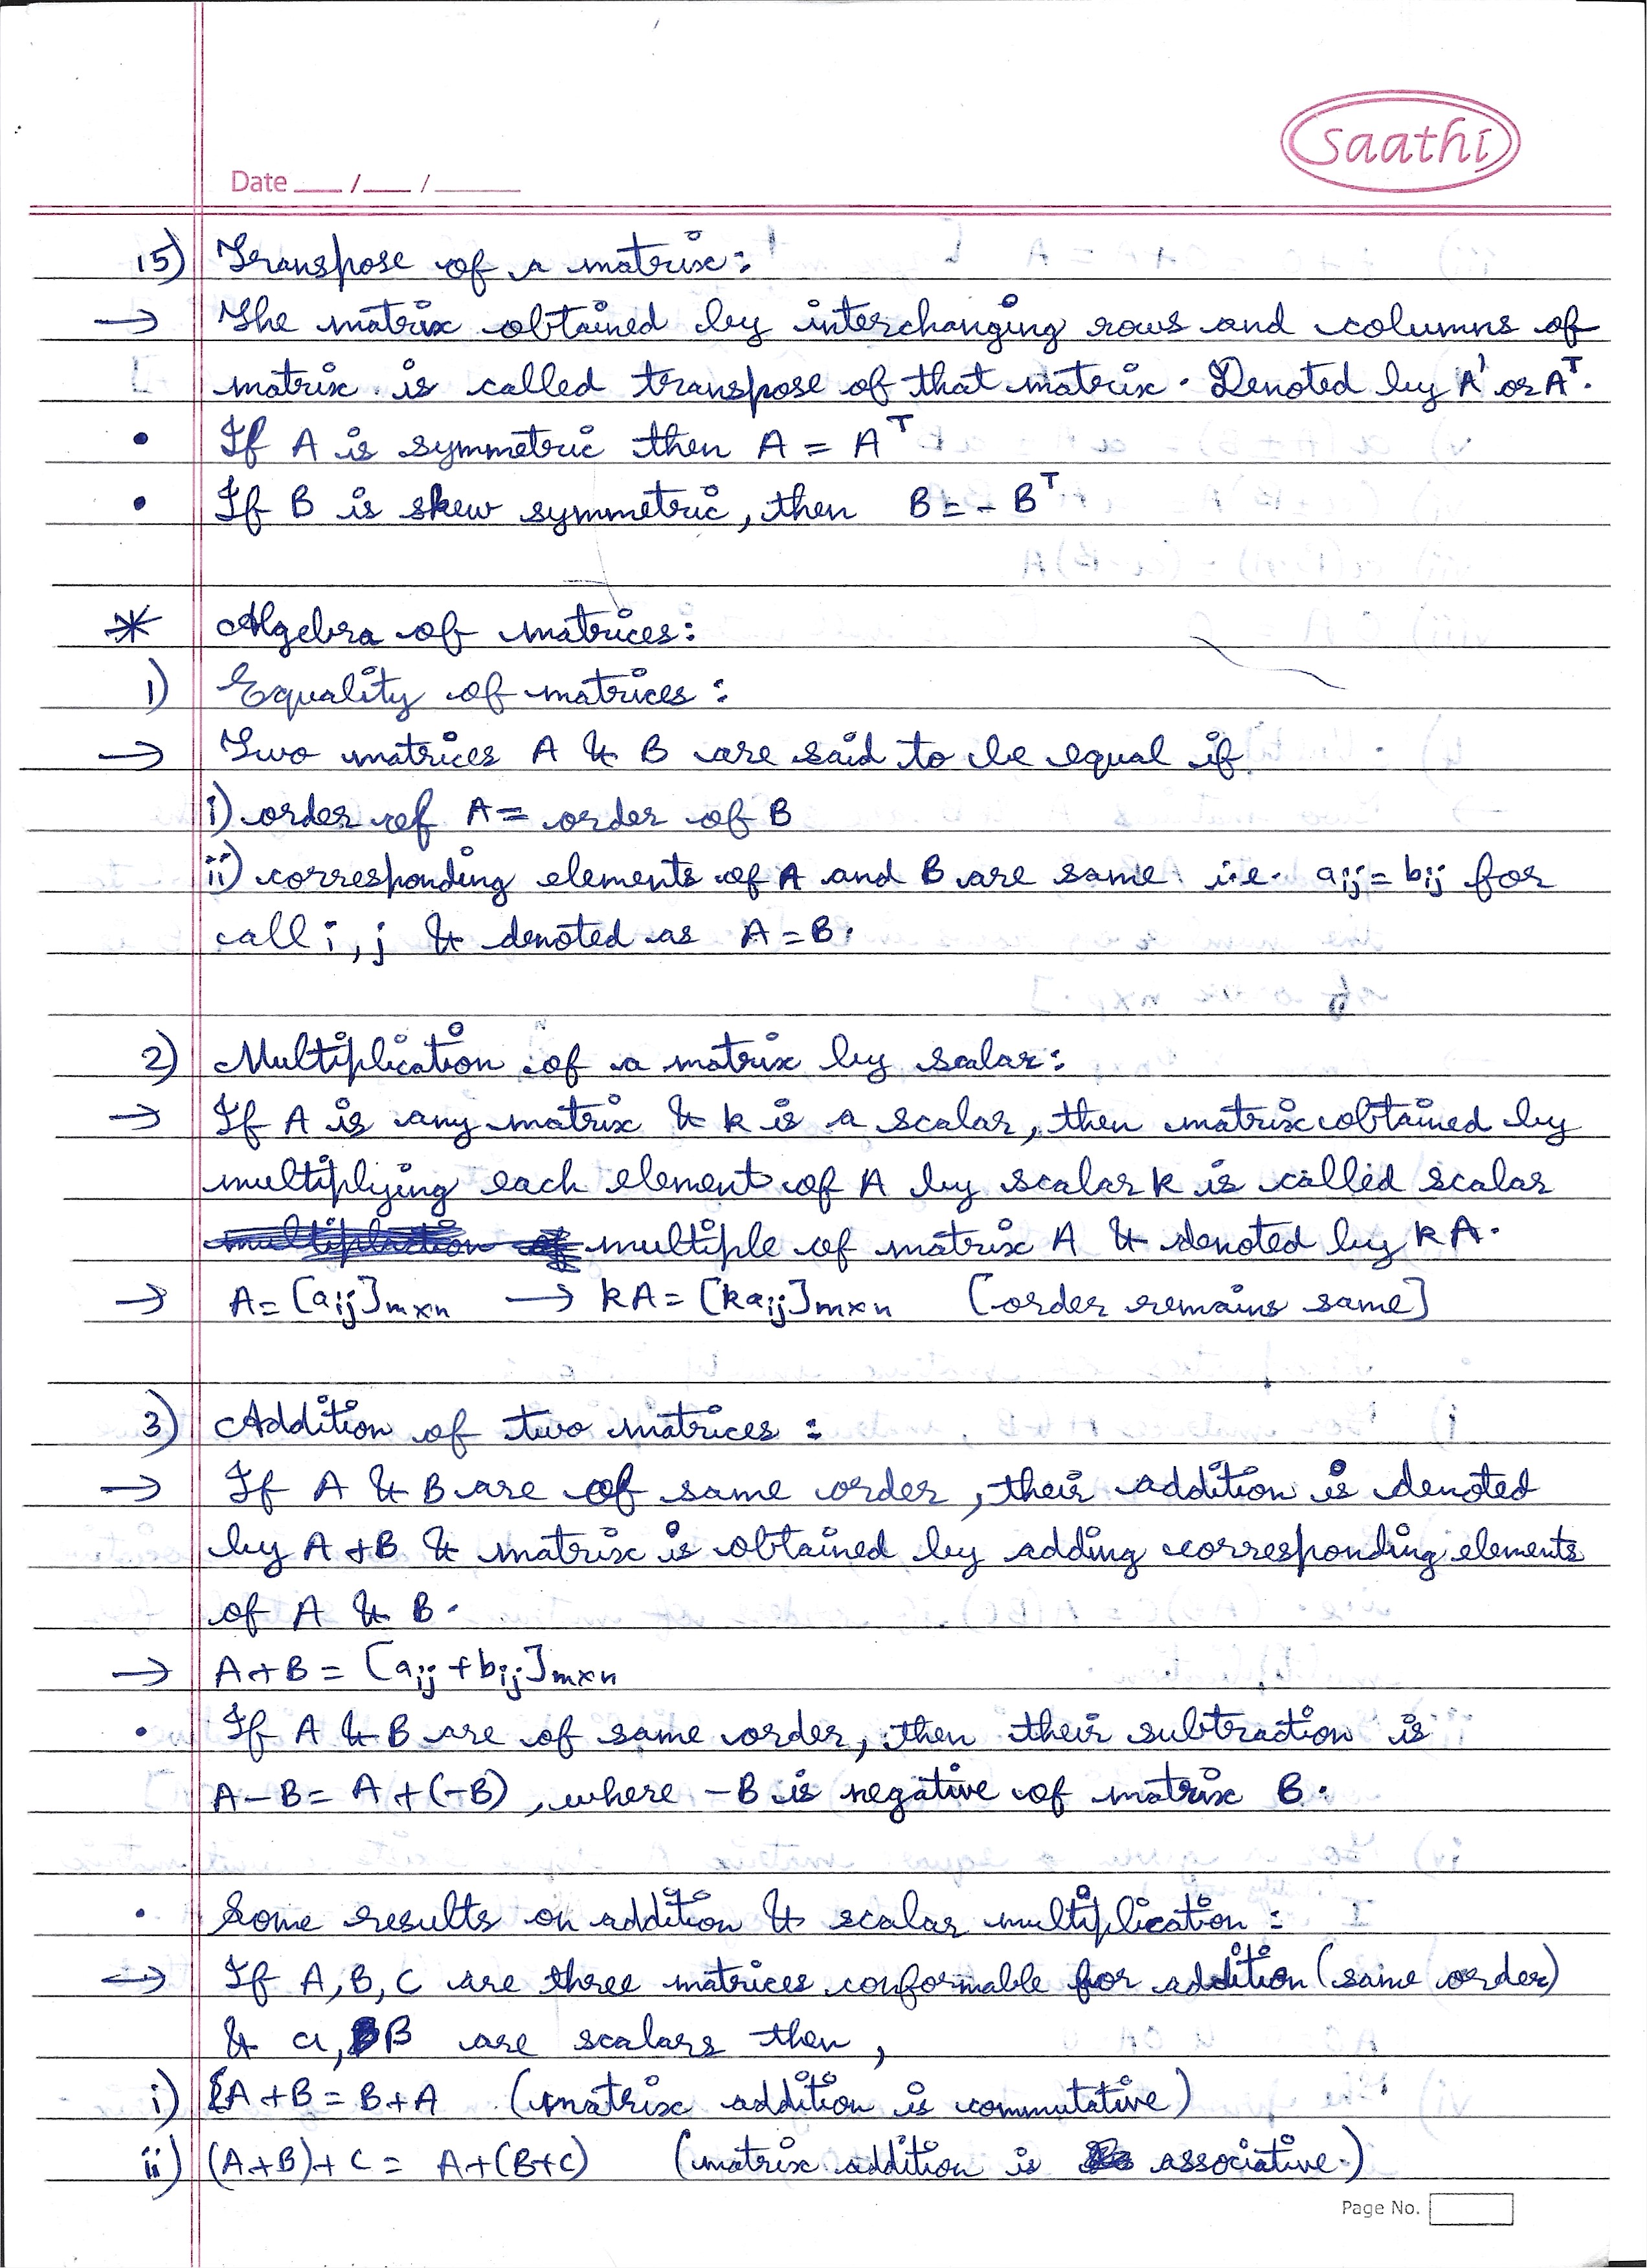 saathi
Date ___ / ___ / _____
15) Transpose of a matrix:
→ The matrix obtained by interchanging rows and columns of
matrix is called transpose of that matrix. Denoted by A' or Aᵀ.
• If A is symmetric then A = Aᵀ
• If B is skew symmetric, then B = - Bᵀ
* Algebra of matrices:
1) Equality of matrices:
→ Two matrices A & B are said to be equal if
i) order of A = order of B
ii) corresponding elements of A and B are same. i.e. aij = bij for
all i, j & denoted as A = B.
2) Multiplication of a matrix by scalar:
→ If A is any matrix & k is a scalar, then matrix obtained by
multiplying each element of A by scalar k is called scalar
multiple of matrix A & denoted by kA.
→ A = [aij]m×n → kA = [kaij]m×n [order remains same]
3) Addition of two matrices:
→ If A & B are of same order, their addition is denoted
by A+B & matrix is obtained by adding corresponding elements
of A & B.
→ A+B = [aij + bij]m×n
• If A & B are of same order, then their subtraction is
A-B = A+(-B), where -B is negative of matrix B.
• Some results on addition & scalar multiplication:
→ If A, B, C are three matrices conformable for addition (same order)
& α, β are scalars then,
i) A+B = B+A (matrix addition is commutative)
ii) (A+B)+C = A+(B+C) (matrix addition is associative.)
Page No.